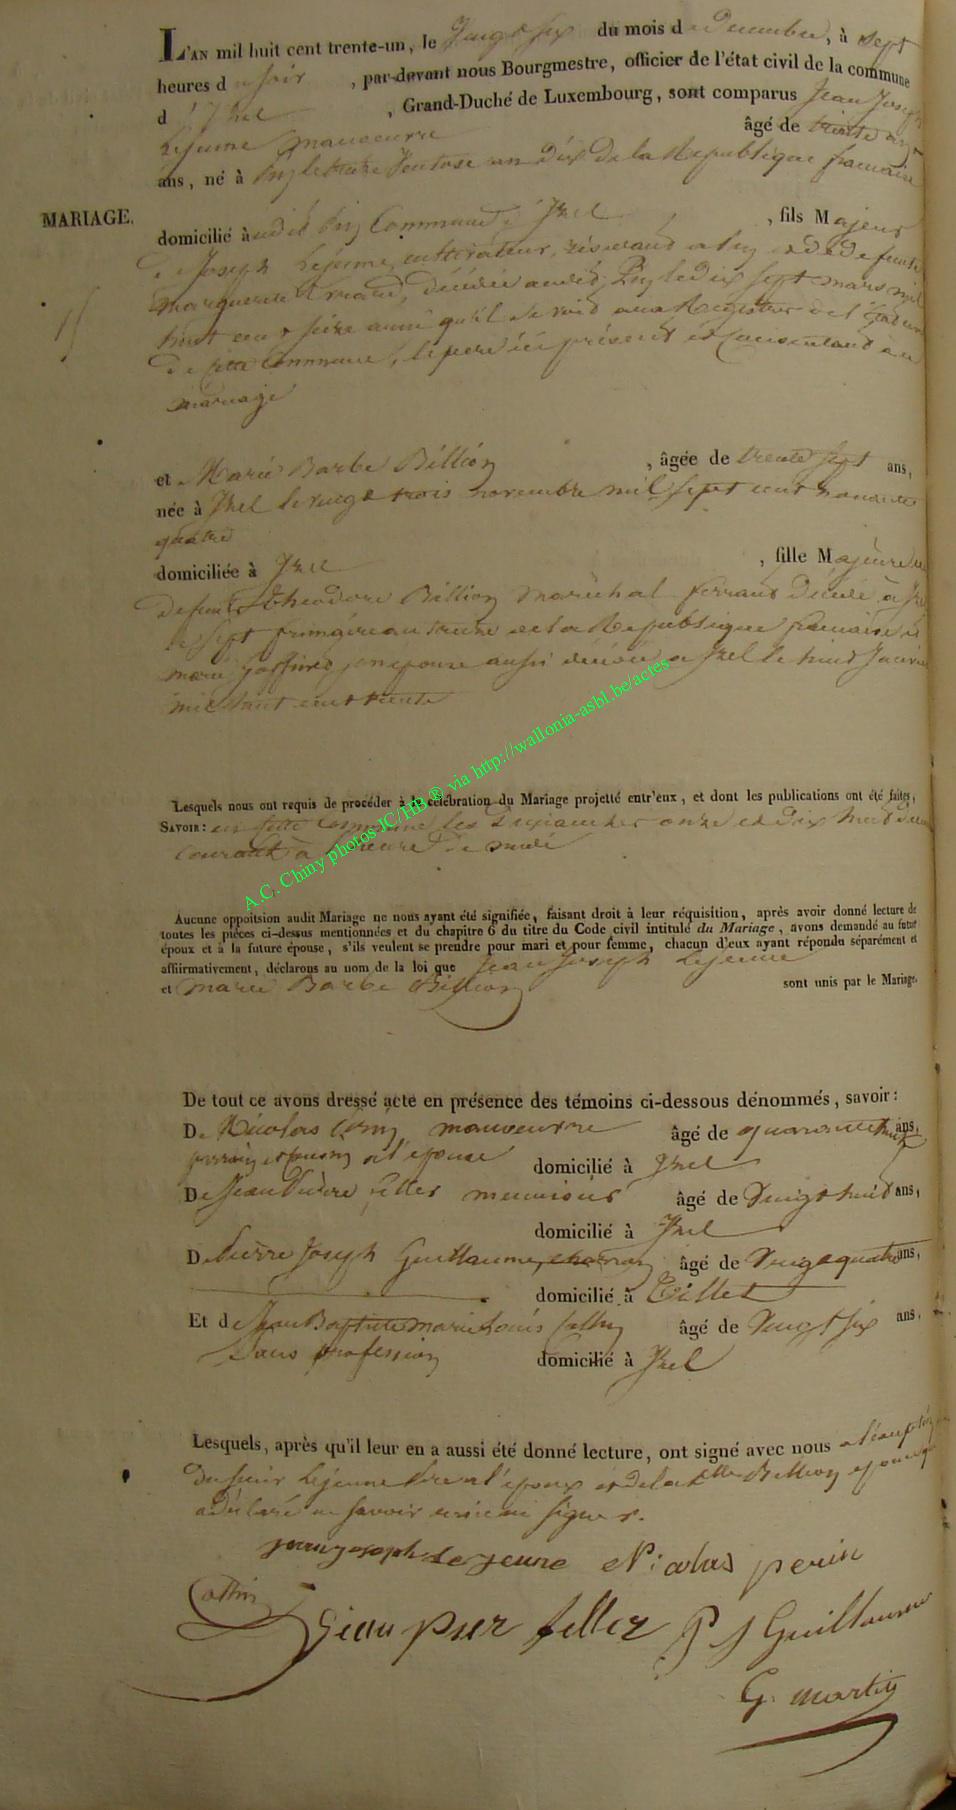 L'AN mil huit cent trente-un, le vingt six du mois de decembre, à sept
heures du soir, par-devant nous Bourgmestre, officier de l'état civil de la commune
d'Izel, Grand-Duché de Luxembourg, sont comparus Jean Joseph
Lejeune manoeuvre âgé de trente
ans, né à Pin le ventose an dix de la Republique francaise
MARIAGE.
domicilié audit Pin Commune d'Izel, fils Majeur
de Joseph Lejeune, cultivateur, résidant a Pin et de defunte
marguerite décédée audit Pin le dix sept mars mil
huit cent seize ainsi qu'il se voit aux Registres de l'État civil
de cette Commune, le pere ici présent et Consentant au
mariage
et Marie Barbe Billion, âgée de trente sept ans,
née à Izel le vingt trois novembre mil sept cent nonante
quatre
domiciliée à Izel, fille Majeure de
defunt théodore Billion maréchal ferrant décédé à Izel
le sept an treize de la Republique francaise et
marie son epouse aussi décédée a Izel le huit Janvier
mil huit cent trente
Lesquels nous ont requis de procéder à la célébration du Mariage projetté entr'eux, et dont les publications ont été faites,
SAVOIR: en cette Commune les Dimanches onze et dix huit du
courant à l'heure de midi
Aucune oppoitsion audit Mariage ne nous ayant été signifiée, faisant droit à leur réquisition, après avoir donné lecture de
toutes les pièces ci-dessus mentionnées et du chapitre 6 du titre du Code civil intitulé du Mariage, avons demandé au futur
époux et à la future épouse, s'ils veulent se prendre pour mari et pour femme, chacun d'eux ayant répondu séparément et
affiirmativement, déclarons au nom de la loi que Jean Joseph Lejeune
et marie Barbe Billion sont unis par le Mariage.
De tout ce avons dressé acte en présence des témoins ci-dessous dénommés, savoir:
De Nicolas manoeuvre âgé de quarante huit ans,
cousin de l'épouse domicilié à Izel
De Jean Pierre feller menuisier âgé de Vingt huit ans,
domicilié à Izel
De Pierre Joseph Guillaume âgé de Vingt quatre ans,
domicilié à Tillet
Et de Jean Baptiste marie Louis âgé de Vingt six ans.
Sans profession domicilié à Izel
Lesquels, après qu'il leur en a aussi été donné lecture, ont signé avec nous a l'exception
du sieur Lejeune Pere de l'époux et de la Billion epouse
a déclaré ne savoir ecrire ni signer.
jean joseph Lejeune Nicolas perin
jean pier feller P J Guillaume
G. martin
A.C. Chiny photos JC/HB ® via http://wallonia-asbl.be/actes